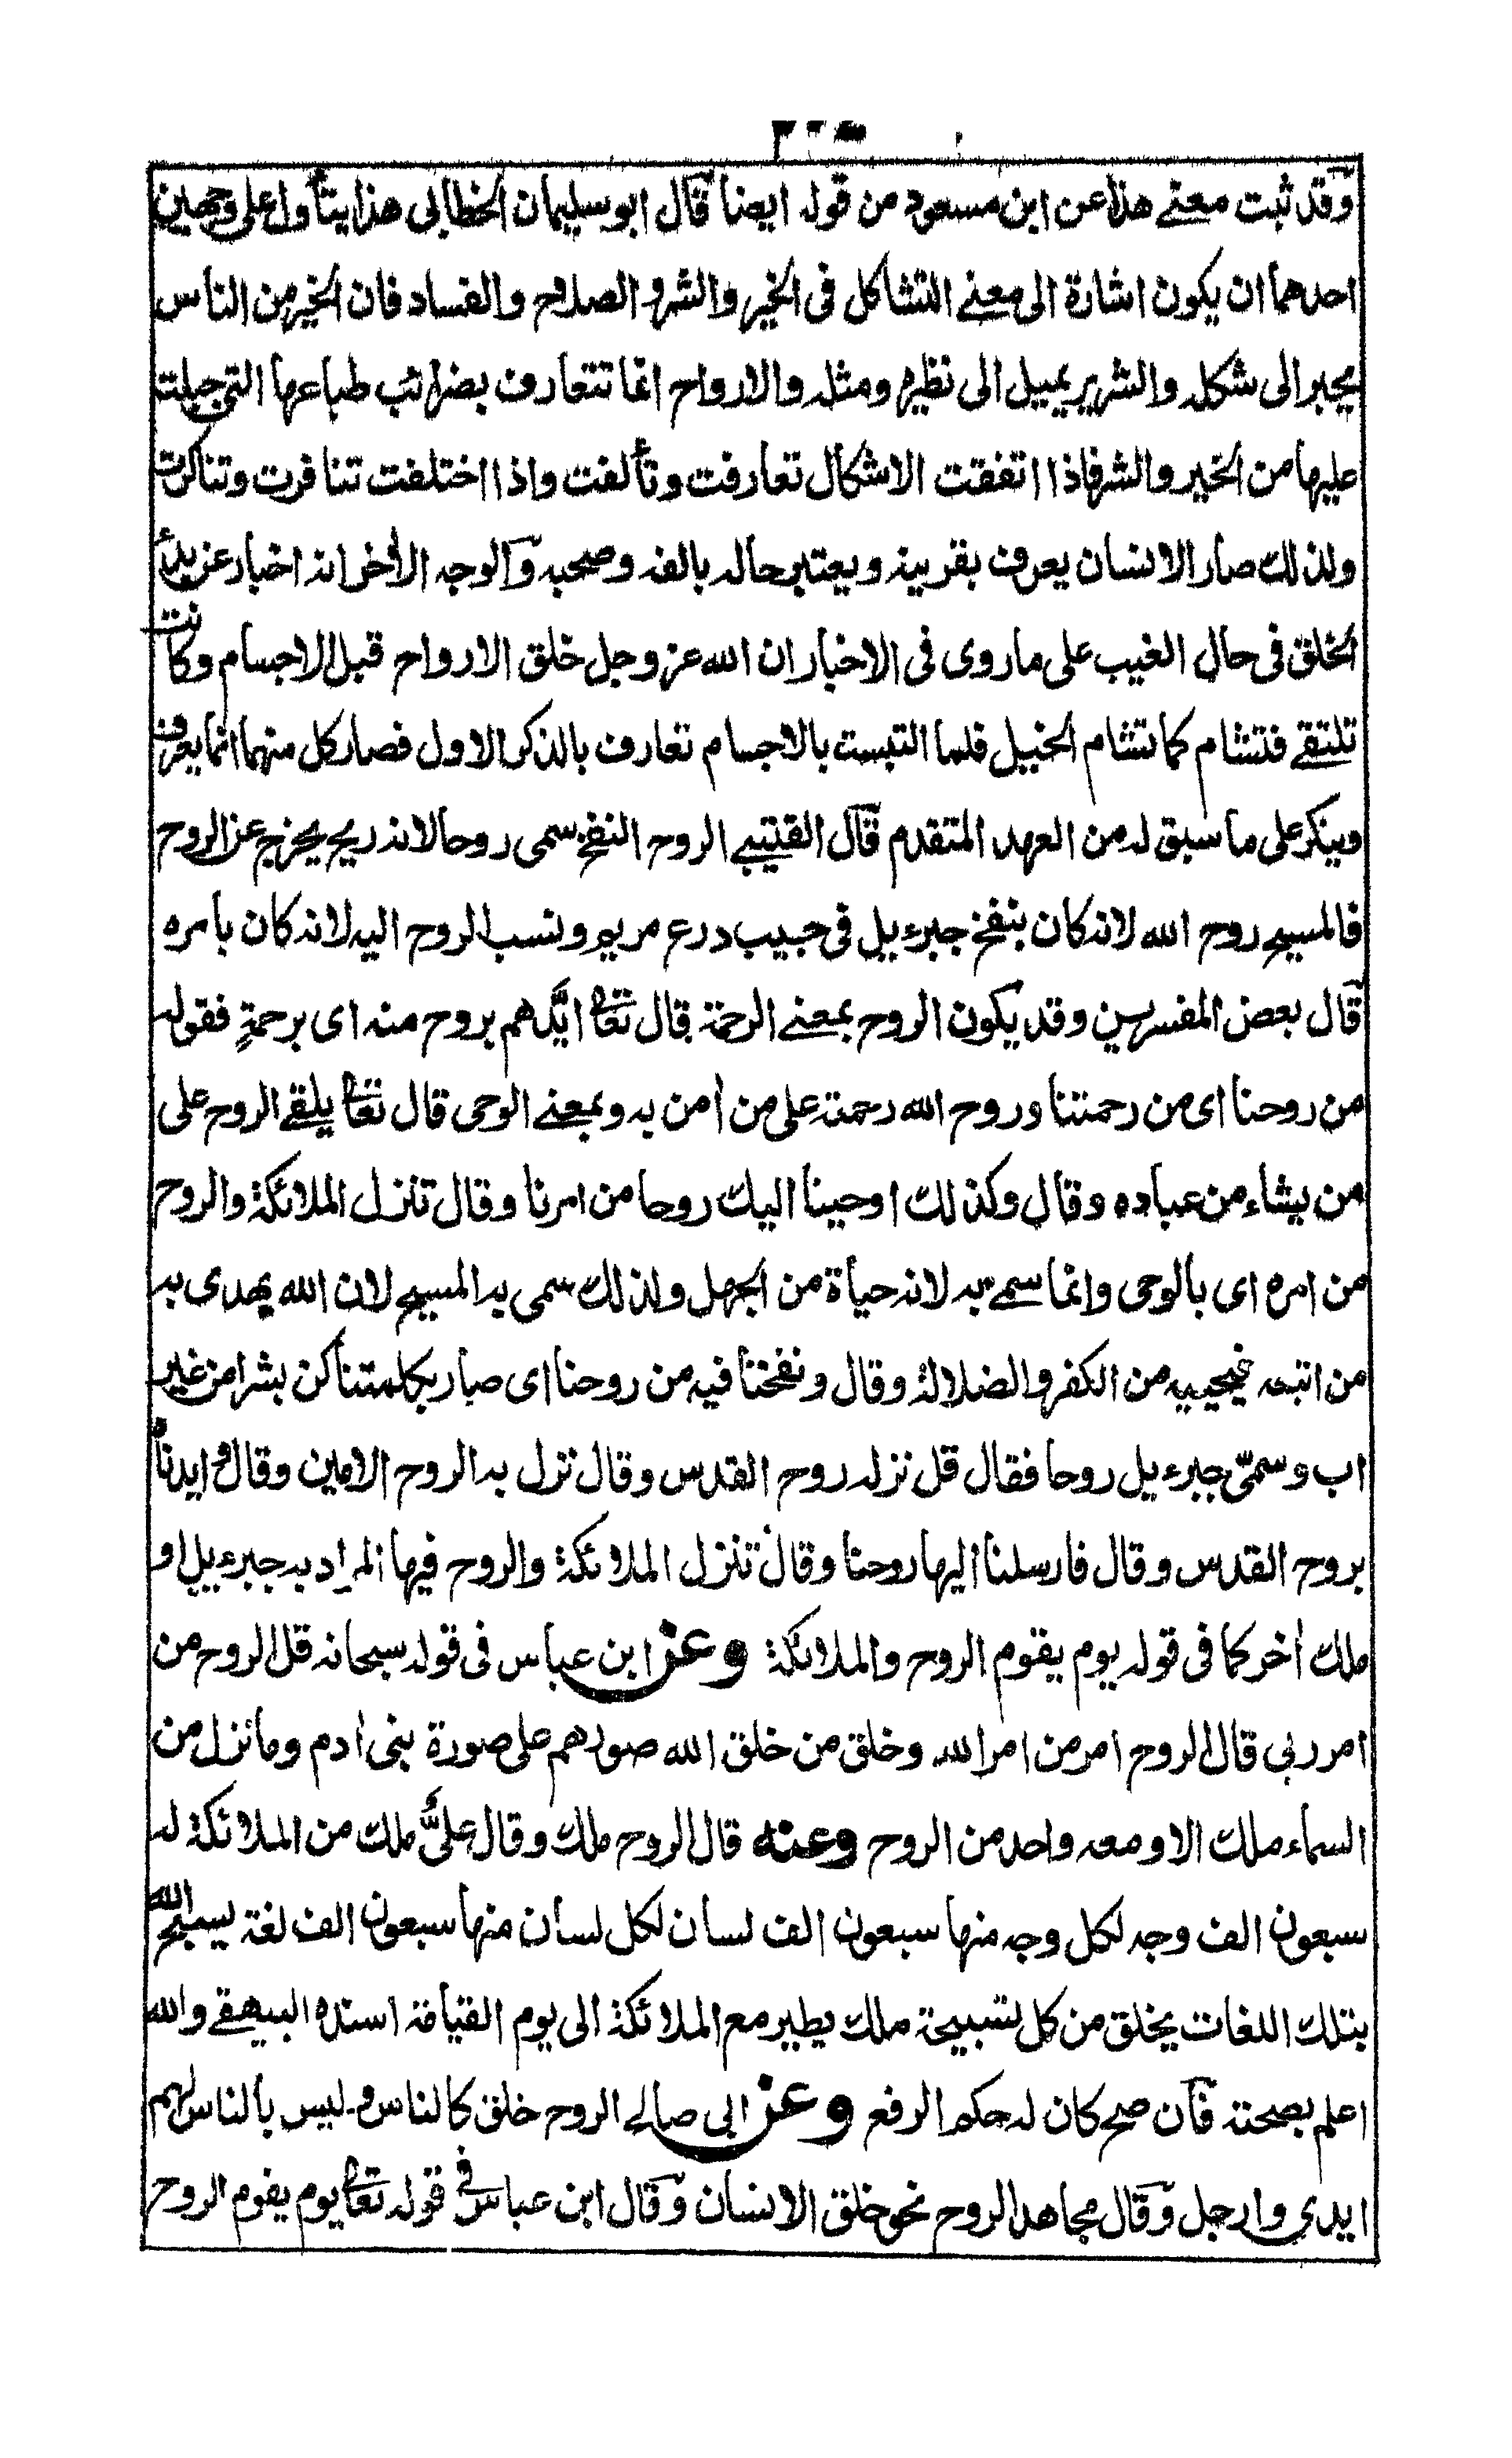 وقد ثبت معنے هذا عن ابن مسعود من قوله ايضا قال ابو سليمان الخطابی هذا يتأول على وجهين
احدهما ان يكون اشارة الى معنے التشاكل فی الخير والشر والصلاح والفساد فان الخير من الناس
يحن الى شكله والشرير يميل الى نظيره ومثله والارواح انما تتعارف بضرائب طباعها التی جبلت
عليها من الخير والشر فاذا اتفقت الاشكال تعارفت وتألفت واذا اختلفت تنافرت وتناكرت
ولذلك صار الانسان يعرف بقرينه ويعتبر حاله بالفه وصحبه والوجه الأخر انه اخبار عن بدأ
الخلق فی حال الغيب على ما روى فی الاخبار ان الله عز وجل خلق الارواح قبل الاجسام وكانت
تلتقے فتشام كما تشام الخيل فلما التبست بالاجسام تعارف بالذكر الاول فصار كل منهما انما يعرف
وينكر على ما سبق له من العهد المتقدم قال القتيبے الروح النفخ سمی روحا لانه ريح يخرج عن الروح
فالمسيح روح الله لانه كان بنفخ جبرءيل فی جيب درع مريم ونسب الروح اليه لانه كان بامره
قال بعض المفسرين وقد يكون الروح بمعنے الرحمة قال تعالى ايّدهم بروح منه ای برحمةٍ فقوله
من روحنا ای من رحمتنا وروح الله رحمته على من أمن به وبمعنے الوحی قال تعالى يلقے الروح على
من يشاء من عباده وقال وكذلك اوحينا اليك روحا من امرنا وقال تنزل الملائكة والروح
من امره ای بالوحی وانما سمے به لانه حياة من الجهل ولذلك سمی به المسيح لان الله يهدی به
من اتبعه فيحييه من الكفر والضلالة وقال ونفخنا فيه من روحنا ای صار بكلمتنا كن بشرا من غير
اب وسمّی جبرءيل روحا فقال قل نزله روح القدس وقال نزل به الروح الامين وقال وايدناه
بروح القدس وقال فارسلنا اليها روحنا وقال تنزل الملائكة والروح فيها المراد به جبرءيل او
ملك أخر كما فی قوله يوم يقوم الروح والملائكة وعن ابن عباس فی قوله سبحانه قل الروح من
امر ربی قال الروح امر من امر الله وخلق من خلق الله صورهم على صورة بنی أدم وما نزل من
السماء ملك الا ومعه واحد من الروح وعنه قال الروح ملك وقال علیٌّ ملك من الملائكة له
سبعون الف وجه لكل وجه منها سبعون الف لسان لكل لسان منها سبعون الف لغة يسبح الله
بتلك اللغات يخلق من كل تسبيحة ملك يطير مع الملائكة الى يوم القيامة اسنده البيهقے والله
اعلم بصحته فان صح كان له حكم الرفع وعن ابی صالح الروح خلق كالناس وليس بالناس لهم
ايدی وارجل وقال مجاهد الروح نحو خلق الانسان وقال ابن عباس فی قوله تعالى يوم يقوم الروح